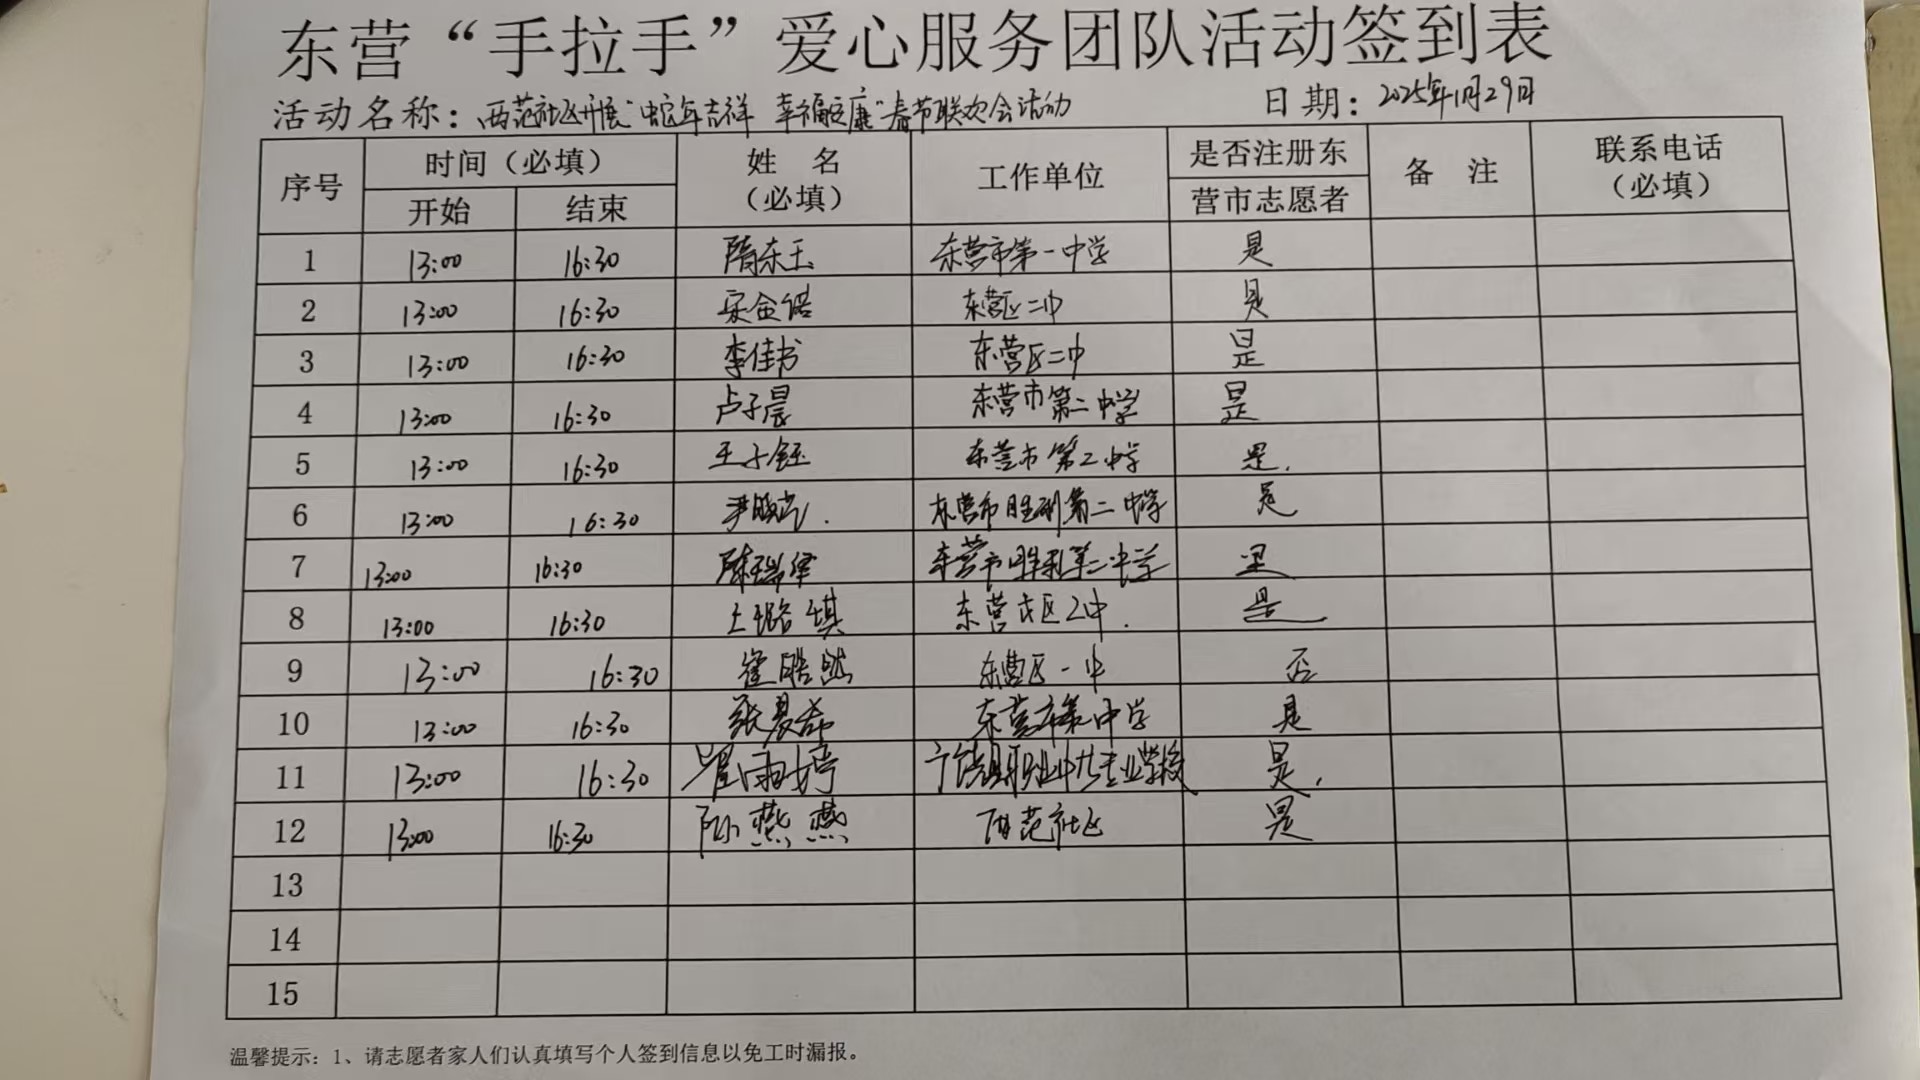 东营“手拉手”爱心服务团队活动签到表
活动名称：西范社区开展“蛇年吉祥 幸福安康”春节联欢会活动 日期：2025年1月29日
序号 时间（必填） 姓名（必填） 工作单位 是否注册东营市志愿者 备注 联系电话（必填）
开始 结束
1 13:00 16:30 隋东玉 东营市第一中学 是
2 13:00 16:30 宋金 东营区二中 是
3 13:00 16:30 李佳书 东营区二中 是
4 13:00 16:30 卢子晨 东营市第二中学 是
5 13:00 16:30 王子钰 东营市第二中学 是.
6 13:00 16:30 尹 东营市胜利第二中学 是
7 13:00 16:30 陈瑞 东营市胜利第二中学 是
8 13:00 16:30 王璐琪 东营市区2中. 是
9 13:00 16:30 崔皓然 东营区一中 否
10 13:00 16:30 张 东营市第 中学 是
11 13:00 16:30 雨婷 职业中等专业学校 是.
12 13:00 16:30 陈燕燕 西范社区 是
13
14
15
温馨提示：1、请志愿者家人们认真填写个人签到信息以免工时漏报。